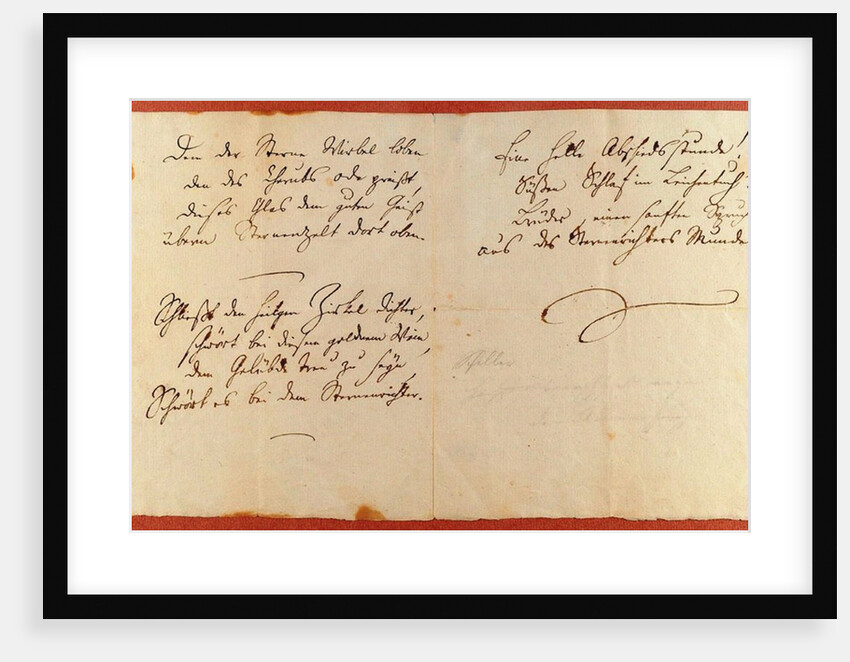 Dem der Sterne Wirbel loben
den des Cherubs Ode preißt,
dieses Glas dem guten Geist
überm Sternenzelt dort oben.
Schließt den heilgen Zirkel dichter,
schwört bei diesem goldnem Wein,
dem Gelübde treu zu seyn,
Schwört es bei dem Sternenrichter.
Eine helle Abschiedsstunde!
Süßen Schlaf im Leichentuch.
Brüder, einen sanften Spruch
aus des Sternenrichters Munde
Schiller